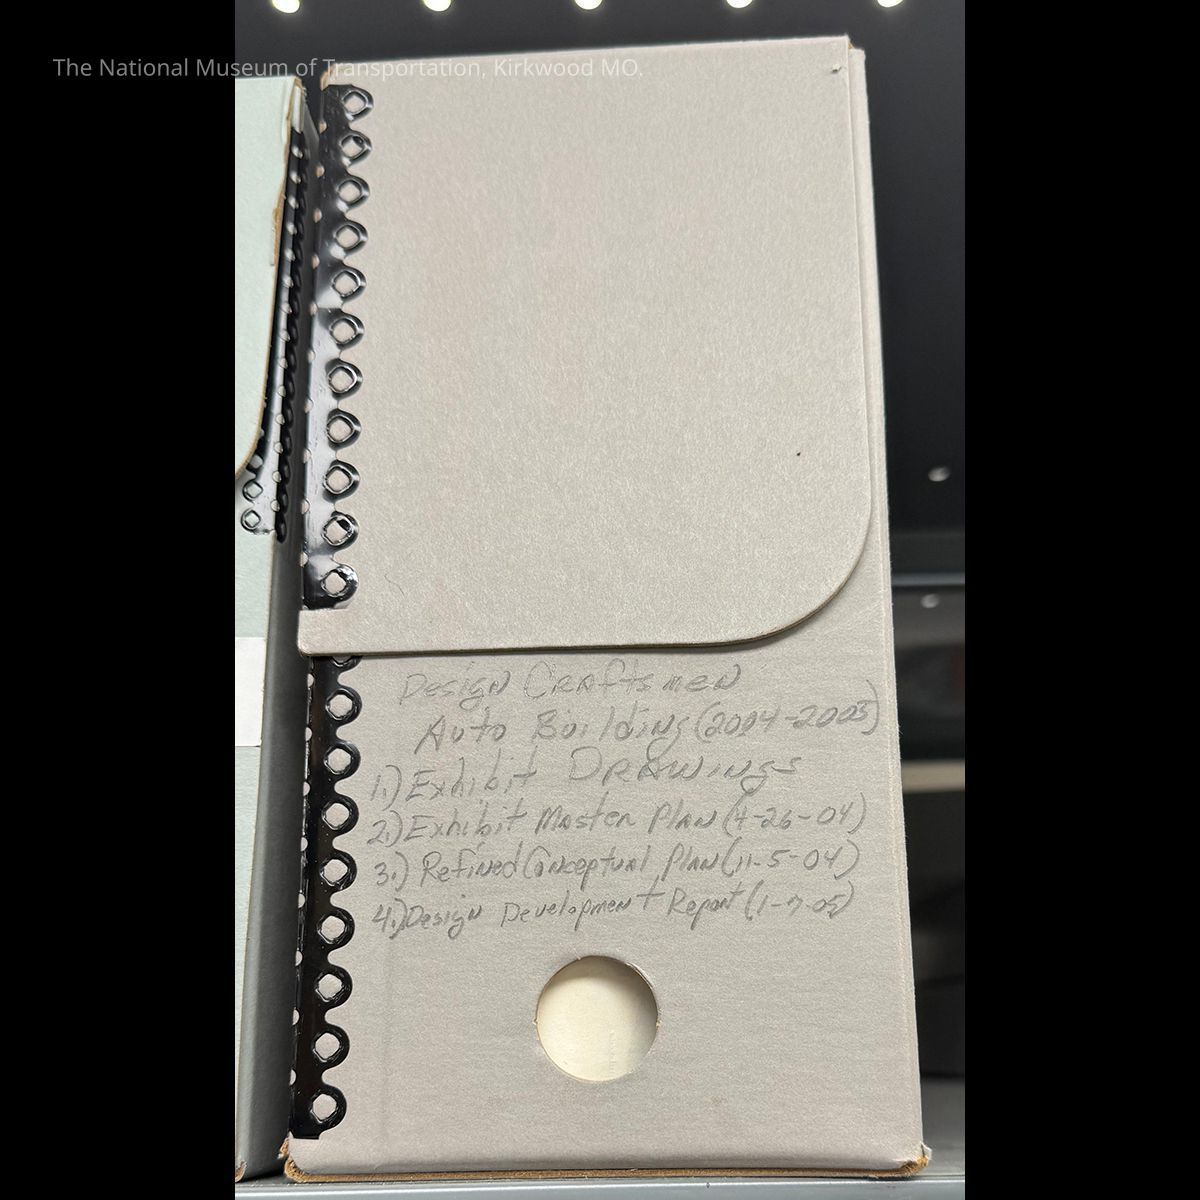 The National Museum of Transportation, Kirkwood MO.
Design Craftsmen
Auto Building (2004-2003)
1.) Exhibit Drawings
2.) Exhibit Master Plan (4-26-04)
3.) Refined Conceptual Plan (11-5-04)
4.) Design Development Report (1-7-05)